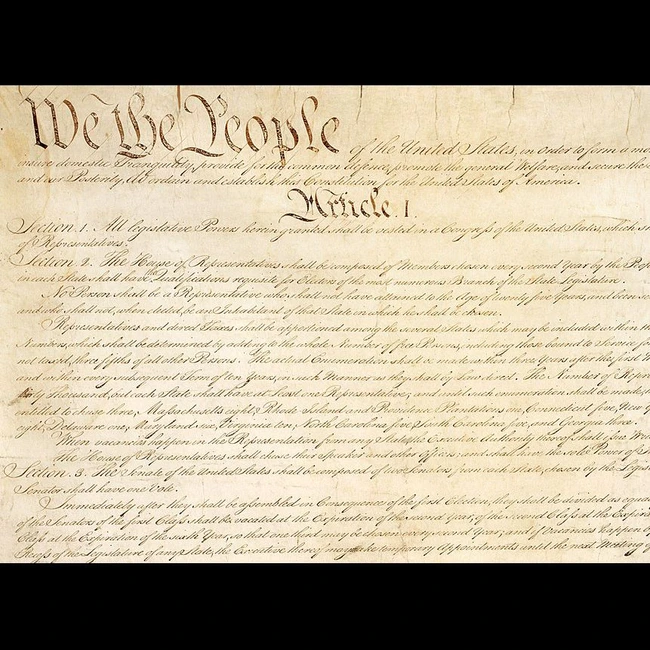 We the People of the United States, in Order to form a mo
insure domestic Tranquility, provide for the common defence, promote the general Welfare, and secure the
and our Posterity, do ordain and establish this Constitution for the United States of America.
Article. I.
Section. 1. All legislative Powers herein granted shall be vested in a Congress of the United States, which sh
of Representatives.
Section. 2. The House of Representatives shall be composed of Members chosen every second Year by the Peop
in each State shall have the Qualifications requisite for Electors of the most numerous Branch of the State Legislature.
No Person shall be a Representative who shall not have attained to the Age of twenty five Years, and been se
and who shall not, when elected, be an Inhabitant of that State in which he shall be chosen.
Representatives and direct Taxes shall be apportioned among the several States which may be included within th
Numbers, which shall be determined by adding to the whole Number of free Persons, including those bound to Service fo
not taxed, three fifths of all other Persons. The actual Enumeration shall be made within three Years after the first M
and within every subsequent Term of ten Years, in such Manner as they shall by Law direct. The Number of Repre
thirty Thousand, but each State shall have at Least one Representative; and until such enumeration shall be made, th
entitled to chuse three, Massachusetts eight, Rhode Island and Providence Plantations one, Connecticut five, New Y
eight, Delaware one, Maryland six, Virginia ten, North Carolina five, South Carolina five, and Georgia three.
When vacancies happen in the Representation from any State, the Executive Authority thereof shall issue Wri
The House of Representatives shall chuse their Speaker and other Officers; and shall have the sole Power of I
Section. 3. The Senate of the United States shall be composed of two Senators from each State, chosen by the Legis
Senator shall have one Vote.
Immediately after they shall be assembled in Consequence of the first Election, they shall be divided as equa
of the Senators of the first Class shall be vacated at the Expiration of the second Year, of the second Class at the Expira
Class at the Expiration of the sixth Year, so that one third may be chosen every second Year; and if Vacancies happen by
Recess of the Legislature of any State, the Executive thereof may make temporary Appointments until the next Meeting of